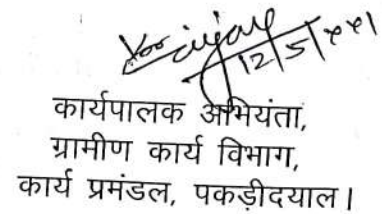 12/5/
कार्यपालक अभियंता,
ग्रामीण कार्य विभाग,
कार्य प्रमंडल, पकड़ीदयाल।